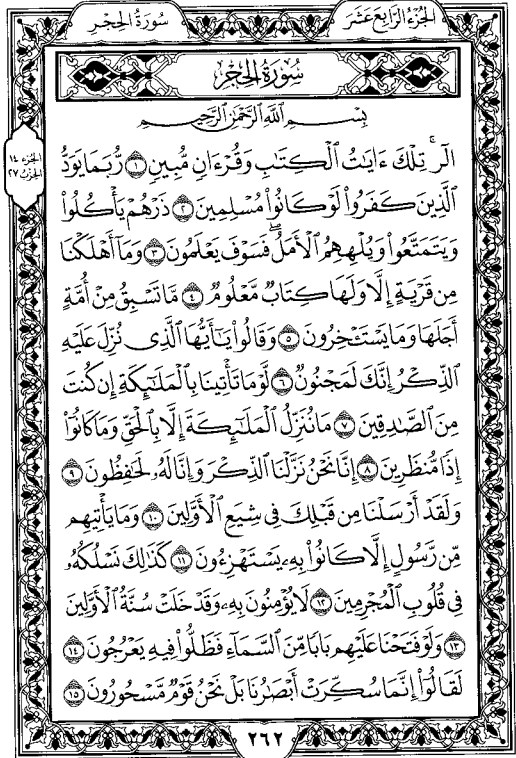 الجُزءُ الرَّابِعَ عَشَرَ
سُورَةُ الحِجْرِ
سُورَةُ الحِجْرِ
بِسْمِ ٱللَّهِ ٱلرَّحْمَٰنِ ٱلرَّحِيمِ
الجزء ١٤
الحزب ٢٧
الٓرۚ تِلْكَ ءَايَٰتُ ٱلْكِتَٰبِ وَقُرْءَانٍ مُّبِينٍ ١ رُّبَمَا يَوَدُّ
ٱلَّذِينَ كَفَرُوا۟ لَوْ كَانُوا۟ مُسْلِمِينَ ٢ ذَرْهُمْ يَأْكُلُوا۟
وَيَتَمَتَّعُوا۟ وَيُلْهِهِمُ ٱلْأَمَلُۖ فَسَوْفَ يَعْلَمُونَ ٣ وَمَآ أَهْلَكْنَا
مِن قَرْيَةٍ إِلَّا وَلَهَا كِتَابٌ مَّعْلُومٌ ٤ مَّا تَسْبِقُ مِنْ أُمَّةٍ
أَجَلَهَا وَمَا يَسْتَـْٔخِرُونَ ٥ وَقَالُوا۟ يَٰٓأَيُّهَا ٱلَّذِى نُزِّلَ عَلَيْهِ
ٱلذِّكْرُ إِنَّكَ لَمَجْنُونٌ ٦ لَّوْ مَا تَأْتِينَا بِٱلْمَلَٰٓئِكَةِ إِن كُنتَ
مِنَ ٱلصَّٰدِقِينَ ٧ مَا نُنَزِّلُ ٱلْمَلَٰٓئِكَةَ إِلَّا بِٱلْحَقِّ وَمَا كَانُوٓا۟
إِذًا مُّنظَرِينَ ٨ إِنَّا نَحْنُ نَزَّلْنَا ٱلذِّكْرَ وَإِنَّا لَهُۥ لَحَٰفِظُونَ ٩
وَلَقَدْ أَرْسَلْنَا مِن قَبْلِكَ فِى شِيَعِ ٱلْأَوَّلِينَ ١٠ وَمَا يَأْتِيهِم
مِّن رَّسُولٍ إِلَّا كَانُوا۟ بِهِۦ يَسْتَهْزِءُونَ ١١ كَذَٰلِكَ نَسْلُكُهُۥ
فِى قُلُوبِ ٱلْمُجْرِمِينَ ١٢ لَا يُؤْمِنُونَ بِهِۦ وَقَدْ خَلَتْ سُنَّةُ ٱلْأَوَّلِينَ
١٣ وَلَوْ فَتَحْنَا عَلَيْهِم بَابًا مِّنَ ٱلسَّمَآءِ فَظَلُّوا۟ فِيهِ يَعْرُجُونَ ١٤
لَقَالُوٓا۟ إِنَّمَا سُكِّرَتْ أَبْصَٰرُنَا بَلْ نَحْنُ قَوْمٌ مَّسْحُورُونَ ١٥
٢٦٢